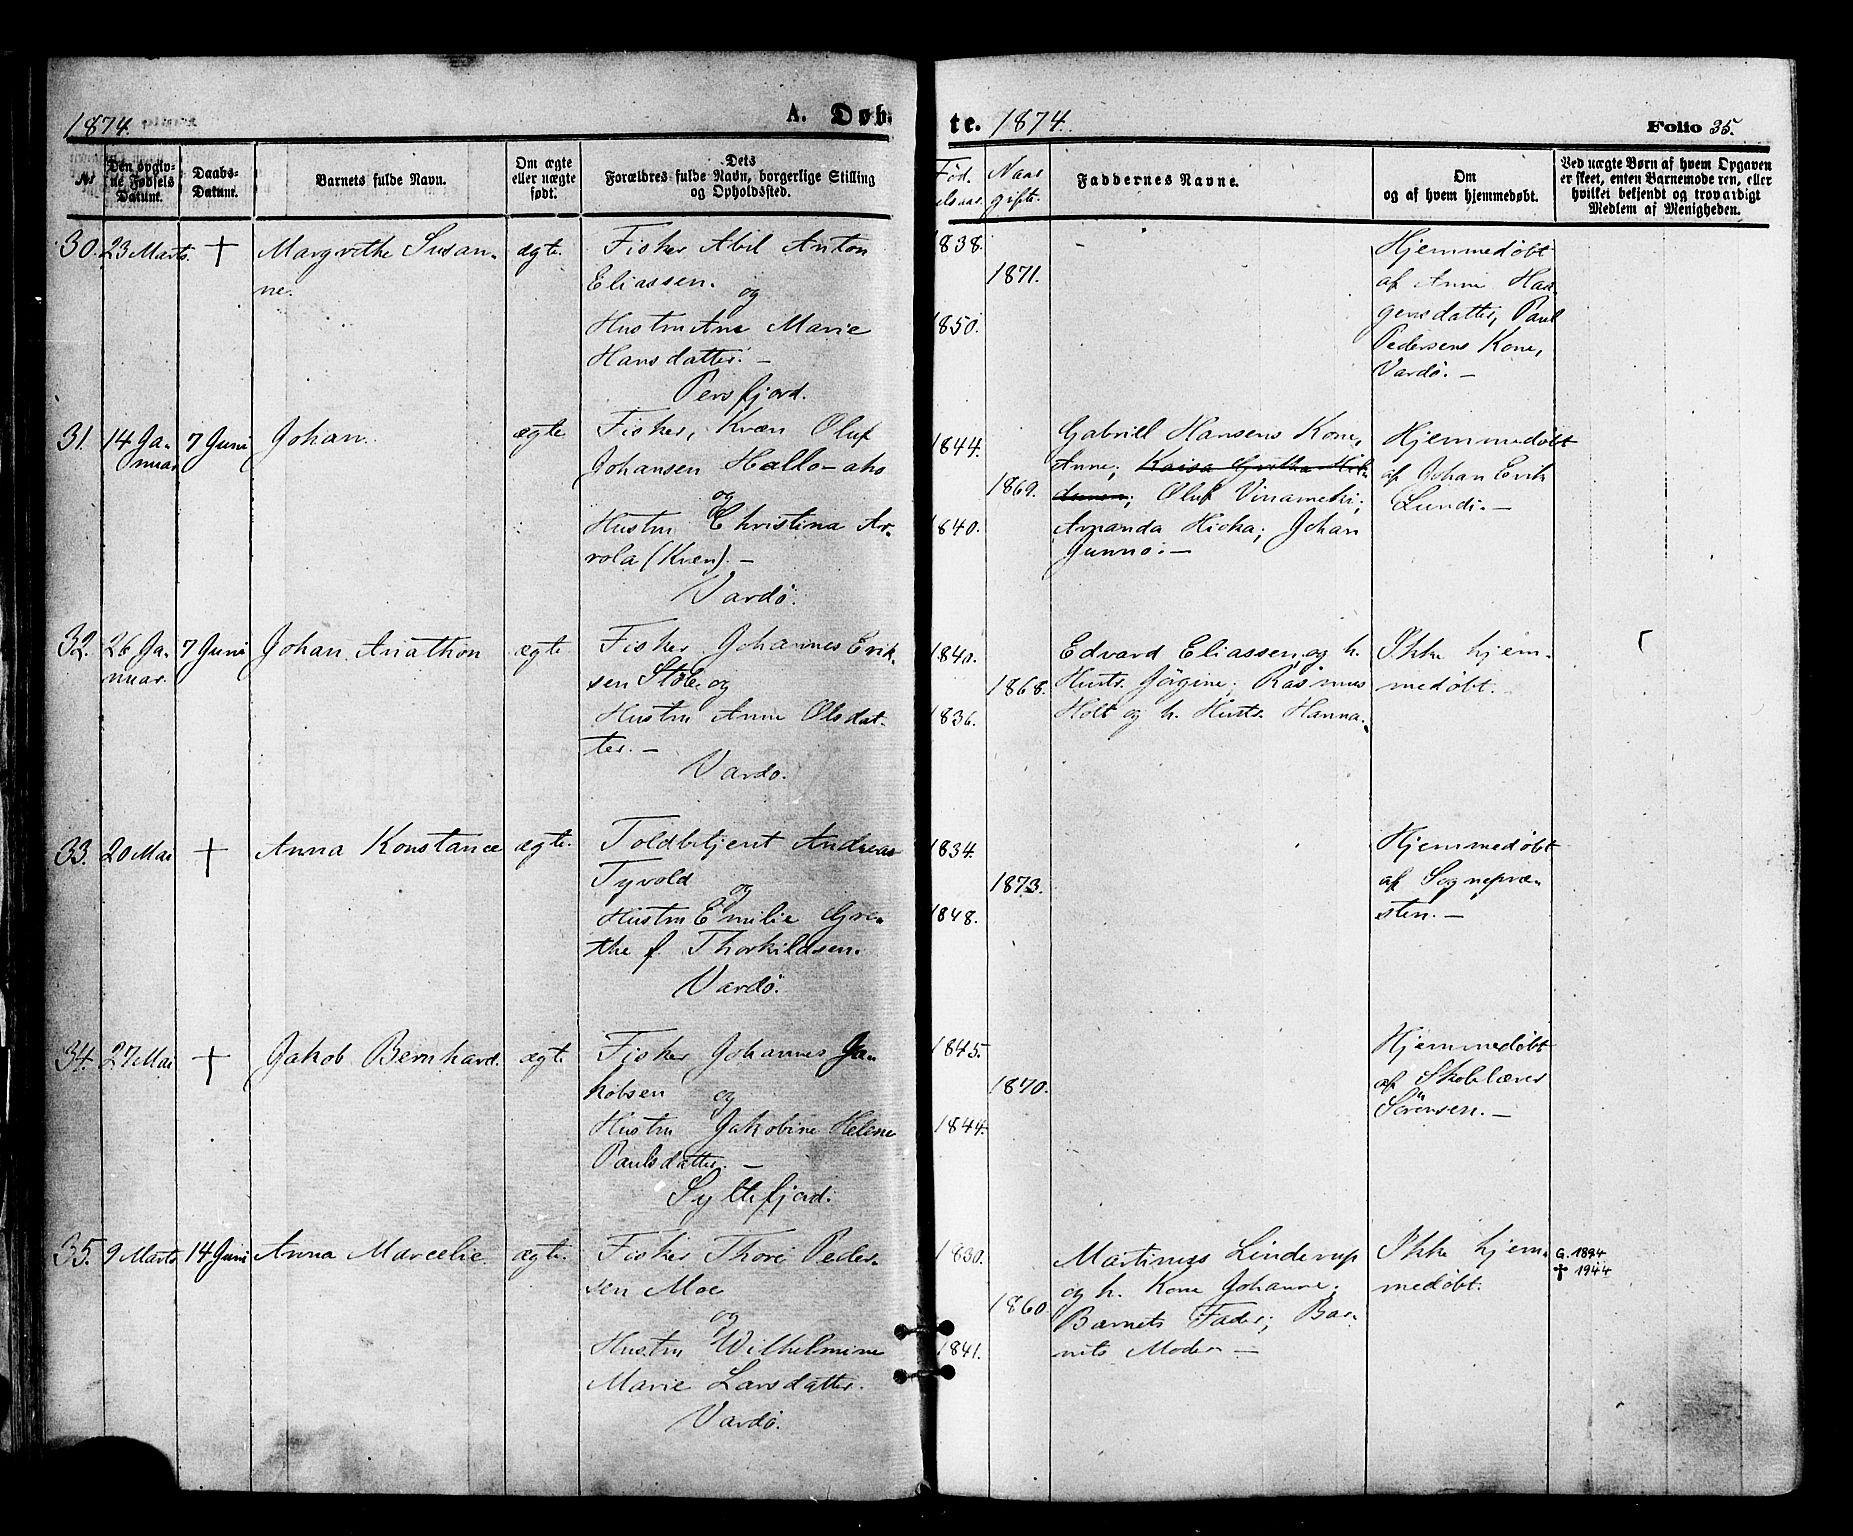 1874.
A. Døb-
te. 1874.
Folio 35.
Nr
Den opgiv-
ne Fødsels
Datum.
Daabs-
Datum.
Barnets fulde Navn.
Om ægte
eller uægte
født.
Dets
Forældres fulde Navn, borgerlige Stilling
og Opholdssted.
Fød
elsaar
Naar
gifte.
Faddernes Navne.
Om
og af hvem hjemmedøbt.
Ved uægte Børn af hvem Opgaven
er skeet, enten Barnemoderen, eller
hvilket bekjendt og troværdigt
Medlem af Menigheden.
30. 23 Marts. † Margrethe Susan-
ne.
ægte.
Fisker Abil Anton
Eliassen.
og
Hustru Ane Marie
Hansdatter. —
Persfjord.
1838.
1871.
1850.
Hjemmedøbt
af Anne Haa-
gensdatter, Paul
Pedersens Kone,
Vardø. —
31. 14 Ja-
nuar
7 Juni
Johan.
ægte
Fisker, Kvæn Oluf
Johansen Hallo-aho
og
Hustru Christina Ar-
vola (Kvæn). —
Vardø.
1844.
1869.
1840.
Gabriell Hansens Kone,
Anne; Kaisa Gretha
Oluf Vinamehi;
Amanda Hicka; Johan
Junno. —
Hjemmedøbt
af Johan Erik
Lundi. —
32. 26 Ja-
nuar.
7 Juni
Johan Anathon
ægte
Fisker Johannes Erik-
sen Støle og
Hustru Anne Olsdat-
ter. —
Vardø.
1840.
1868.
1836.
Edvard Eliassen og h.
Hustr. Jørgine; Rasmus
Holt og h. Hustr. Hanna.
Ikke hjem-
medøbt.
33. 20 Mai † Anna Konstance
ægte.
Toldbetjent Andreas
Tyvold
og
Hustru Emilie Gre-
the f. Thorkildsen.
Vardø.
1834.
1873.
1848.
Hjemmedøbt
af Sognepræ-
sten. —
34. 27 Mai † Jakob Bernhard.
ægte
Fisker Johannes Ja-
kobsen
og
Hustru Jakobine Helene
Paulsdatter. —
Syltefjord.
1845.
1870.
1844.
Hjemmedøbt
af Skolelærer
Sørensen. —
35. 9 Marts 14 Juni Anna Marcelie.
ægte.
Fisker Thore Peder-
sen Moe
og
Hustru Wilhelmine
Marie Larsdatter.
Vardø.
1830.
1860.
1841.
Martinus Linderup
og h. Kone Johanne;
Barnets Fader; Bar-
nets Moder —
Ikke hjem-
medøbt.
G. 1894
† 1944